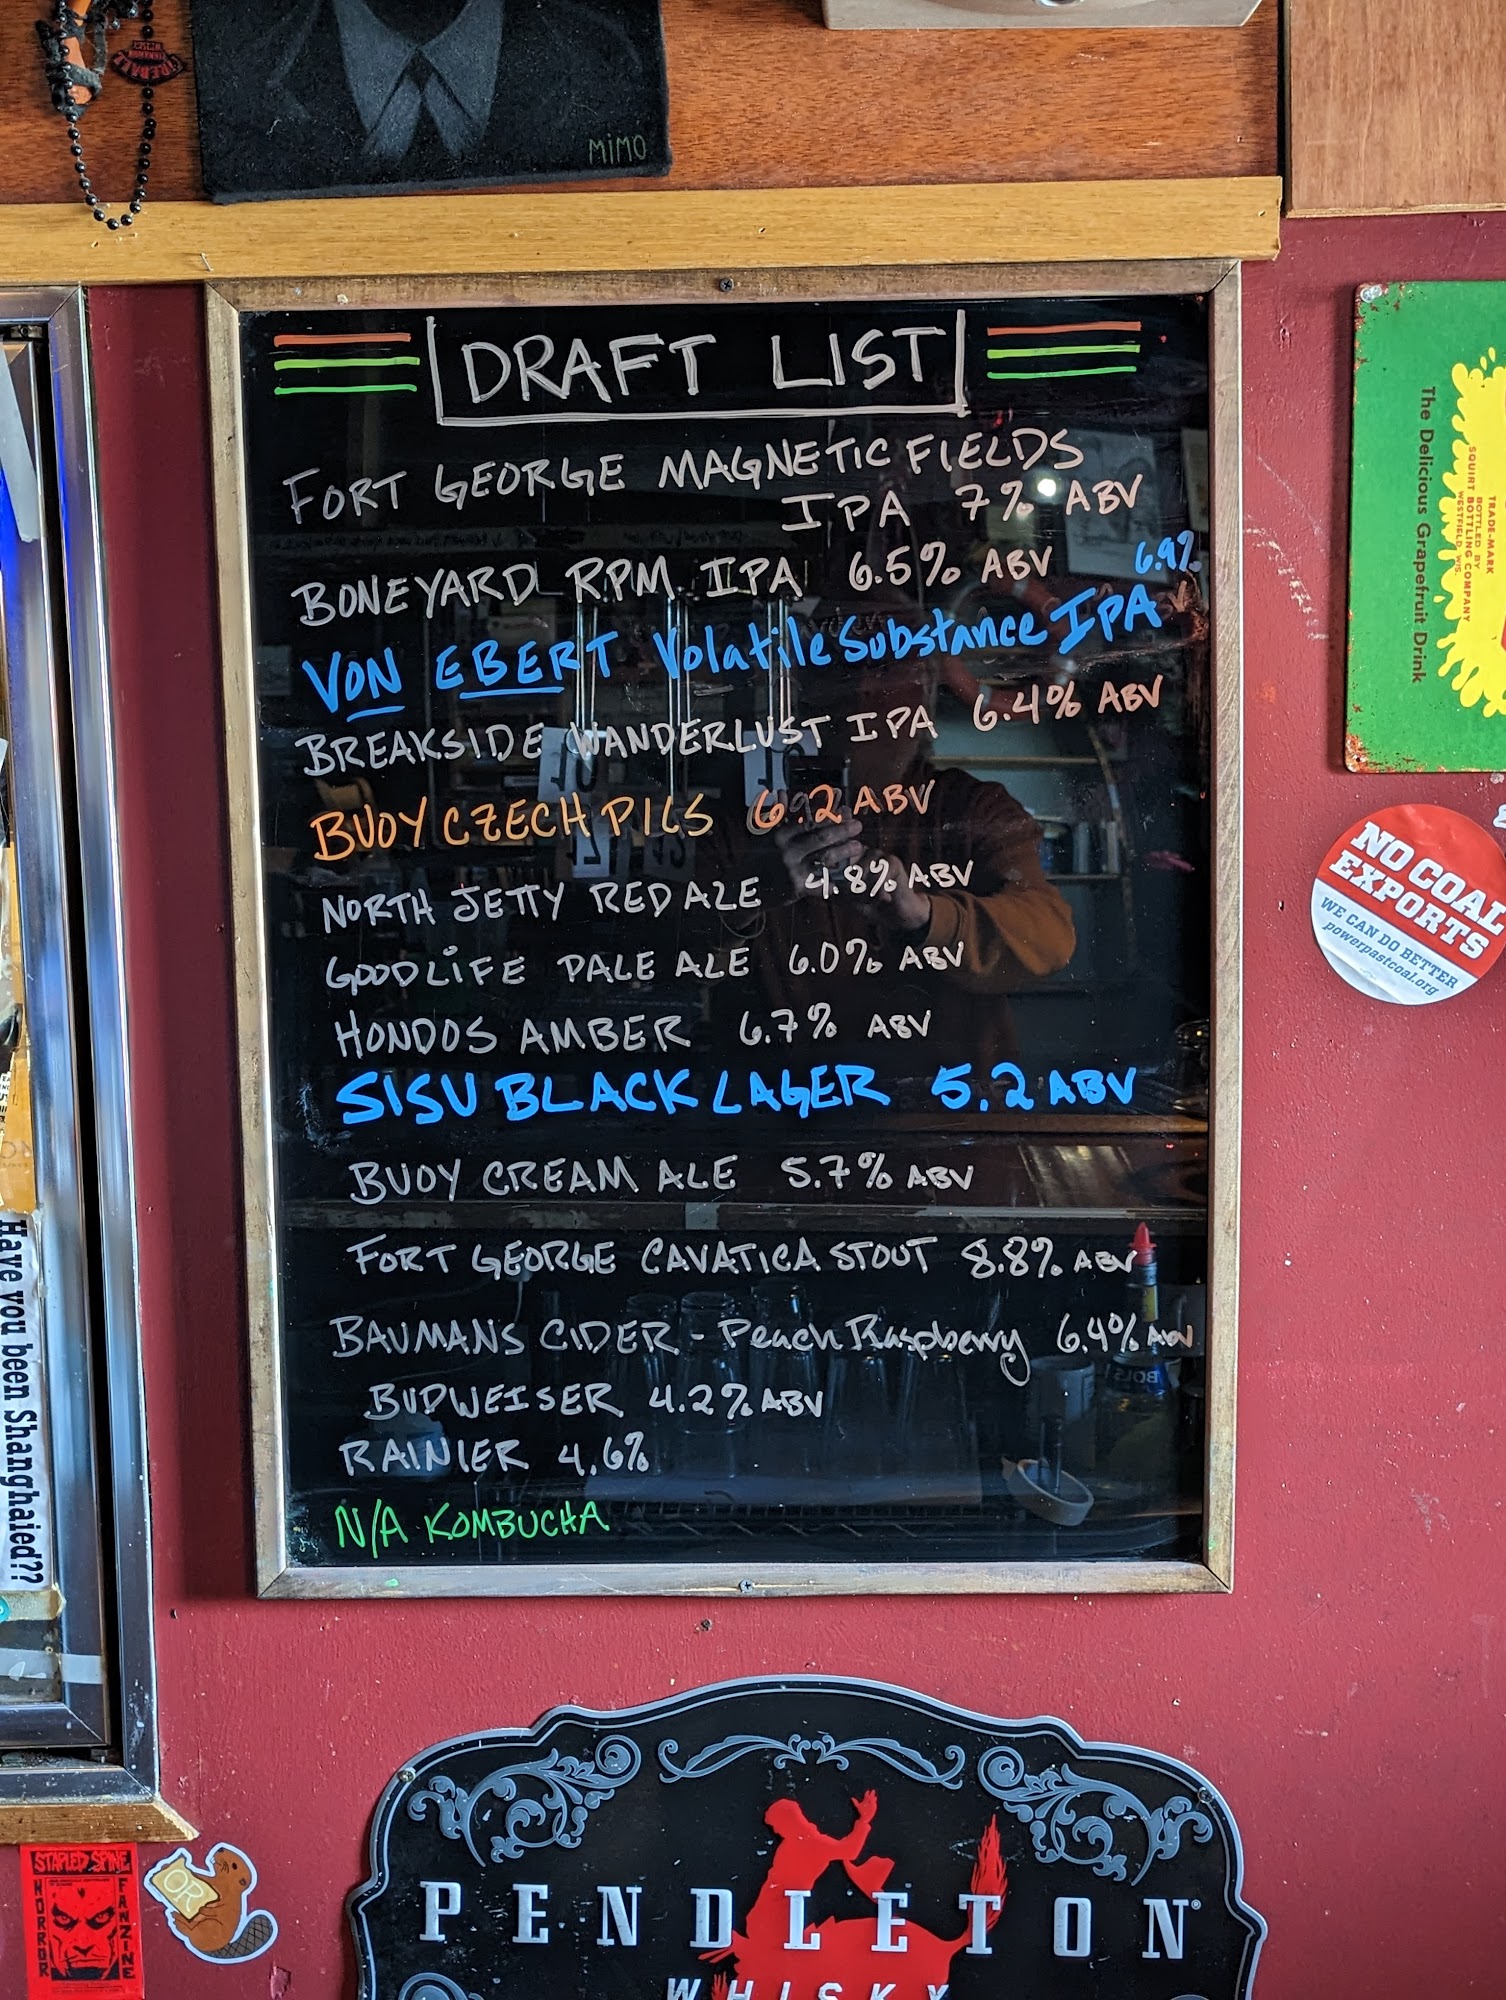 FIREBALL
MiMO
DRAFT LIST
FORT GEORGE MAGNETIC FIELDS
IPA 7% ABV
BONEYARD RPM IPA 6.5% ABV
6.9%
VON EBERT Volatile Substance IPA
BREAKSIDE WANDERLUST IPA 6.4% ABV
BUOY CZECH PILS 6.2 ABV
NORTH JETTY RED ALE 4.8% ABV
GOODLIFE PALE ALE 6.0% ABV
HONDOS AMBER 6.7% ABV
SISU BLACK LAGER 5.2 ABV
BUOY CREAM ALE 5.7% ABV
FORT GEORGE CAVATICA STOUT 8.8% ABV
BAUMANS CIDER - Peach Raspberry 6.4% ABV
BUDWEISER 4.2% ABV
RAINIER 4.6%
N/A KOMBUCHA
The Delicious Grapefruit Drink
TRADE-MARK
BOTTLED BY
SQUIRT BOTTLING COMPANY
WESTFIELD, WIS.
NO COAL
EXPORTS
WE CAN DO BETTER
powerpastcoal.org
Have you been Shanghaied??
STAPLED SPINE
HORROR
FANZINE
OR
PENDLETON®
WHISKY